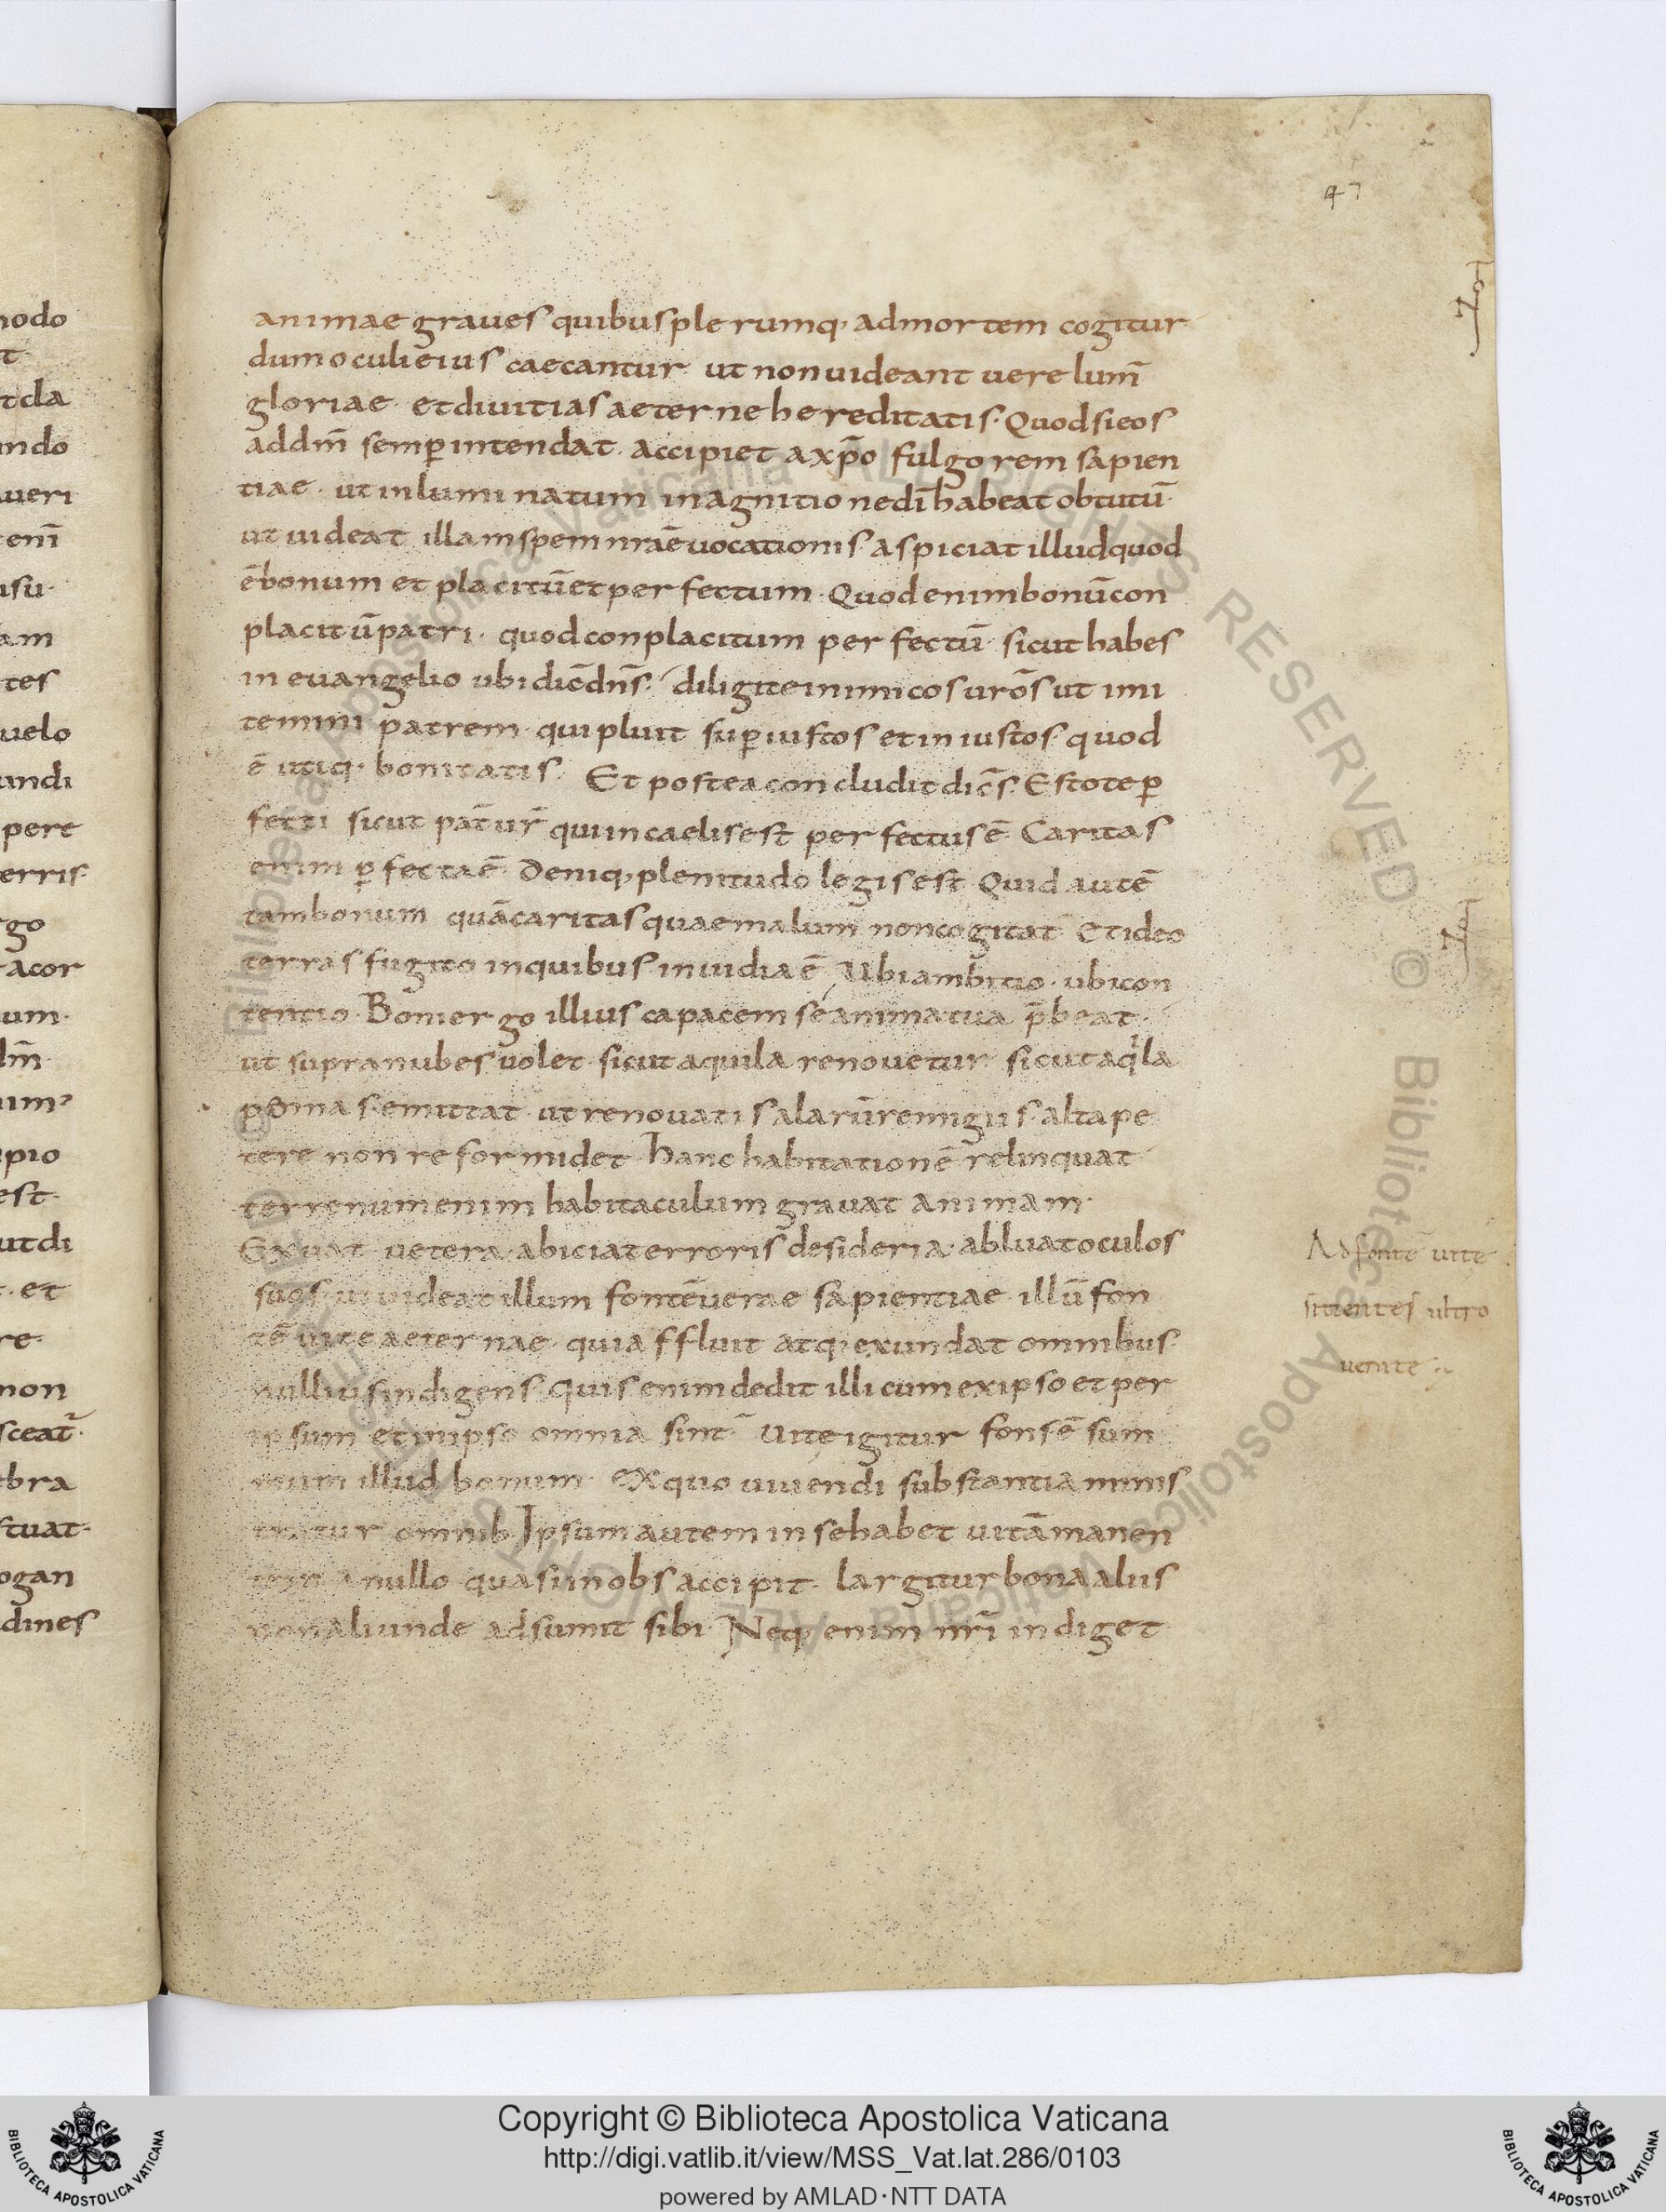 47
animae graues quibus plerumq; ad mortem cogitur
dum oculi eius caecantur ut non uideant uere lum̄
gloriae et diuitias aeterne hereditatis. Quod si eos
ad dm̄ semꝑ intendat. accipiet a xp̄o fulgorem sapien
tiae. ut inluminatum in agnitione dī habeat obtutū.
ut uideat illam spem nrāe uocationis aspiciat illud quod
ē bonum et placitū et perfectum. Quod enim bonū con
placitū patri. quod conplacitum perfectū sicut habes
in euangelio ubi dic̄ dn̄s. diligite inimicos urōs ut imi
temini patrem. qui pluit suꝑ iustos et iniustos. quod
ē utiq; bonitatis. Et postea concludit dicēs. Estote ꝑ
fecti sicut pat̄ ur̄ qui in caelis est perfectus ē Caritas
enim ꝑfecta ē. Deniq; plenitudo legis est Quid autē
tam bonum quā caritas quae malum non cogitat Et ideo
terras fugito in quibus inuidia ē, Ubi ambitio. ubi con
tentio. Boni ergo illius capacem se anima tua p̄beat.
ut supra nubes uolet. sicut aquila renouetur sicut aqͥla
pennas emittat ut renouatis alarū remigiis alta pe
tere non reformidet. hanc habitationē relinquat
terrenum enim habitaculum grauat animam.
Exuat uetera. abiciat erroris desideria. abluat oculos
suos. ut uideat illum fontē uerae sapientiae. illū fon
tē uite aeternae. qui affluit atq; exundat omnibus.
nullius indigens. Quis enim dedit illi cum ex ipso et per
ipsum et in ipso omnia sint. Uitę igitur fons ē sum
mum illud bonum. ex quo uiuendi substantia minis
tratur omnib. Ipsum autem in se habet uitā manen
tem. a nullo quasi inobs accipit. largitur bona aliis
non aliunde adsumit sibi. Neq; enim nr̄i indiget
Ad fontē uitę
sitientes ultro
uenite
Copyright © Biblioteca Apostolica Vaticana
http://digi.vatlib.it/view/MSS_Vat.lat.286/0103
powered by AMLAD·NTT DATA
BIBLIOTECA APOSTOLICA VATICANA
BIBLIOTECA APOSTOLICA VATICANA